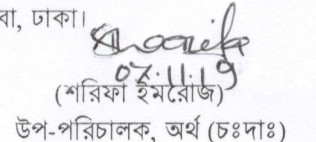 বা, ঢাকা।
07.11.19
(শরিফা ইমরোজ)
উপ-পরিচালক, অর্থ (চঃদাঃ)